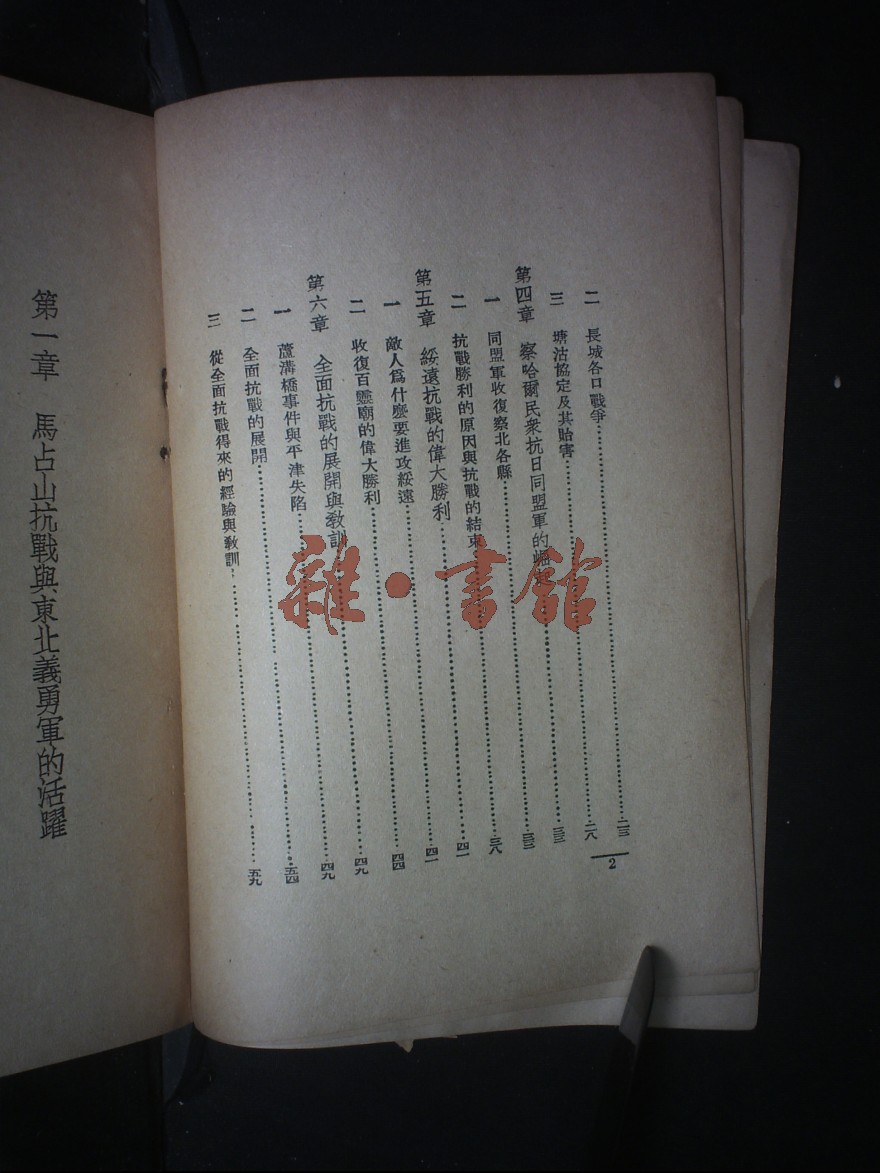 二　長城各口戰爭……二三
三　塘沽協定及其貽害……二八
第四章　察哈爾民衆抗日同盟軍的崛起……三三
一　同盟軍收復察北各縣……三三
二　抗戰勝利的原因與抗戰的結束……三八
第五章　綏遠抗戰的偉大勝利……四一
一　敵人爲什麼要進攻綏遠……四一
二　收復百靈廟的偉大勝利……四四
第六章　全面抗戰的展開與敎訓……四九
一　蘆溝橋事件與平津失陷……四九
二　全面抗戰的展開……五四
三　從全面抗戰得來的經驗與敎訓……五九
2
第一章　馬占山抗戰與東北義勇軍的活躍
雜·書館